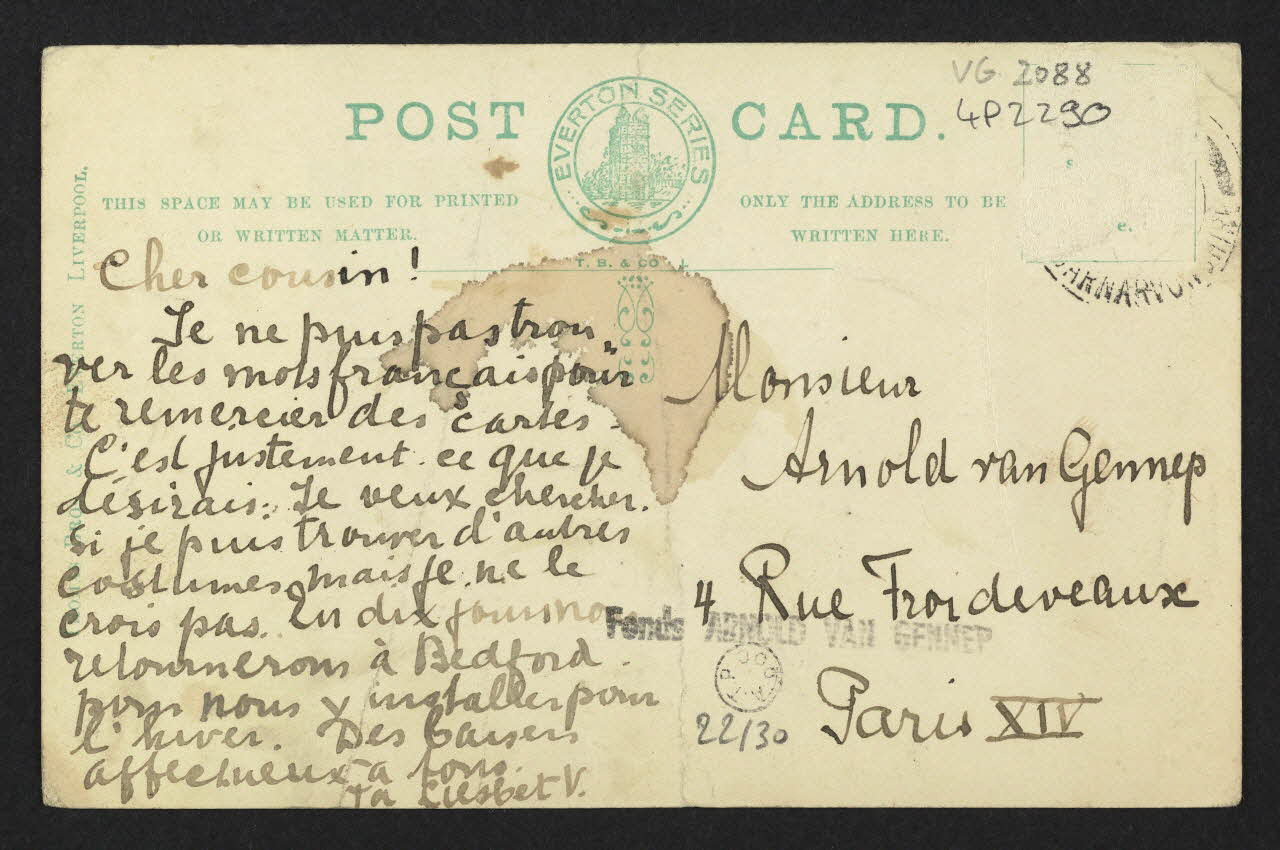 VG 2088
4P2290
POST CARD.
EVERTON SERIES
THIS SPACE MAY BE USED FOR PRINTED
OR WRITTEN MATTER.
ONLY THE ADDRESS TO BE
WRITTEN HERE.
T. B. & CO
LIVERPOOL.
CARNARVON
Cher cousin!
Je ne puis pas trou
ver les mots français pour
te remercier des cartes.
C'est justement ce que je
désirais. Je veux chercher
si je puis trouver d'autres
costumes, mais je ne le
crois pas. En dix jours no
retournerons à Bedford
pour nous y installer pour
l'hiver. Des baisers
affectueux à tous.
Ta Liesbet V.
Monsieur
Arnold van Gennep
4 Rue Froideveaux
Fonds ARNOLD VAN GENNEP
22/30
Paris XIV